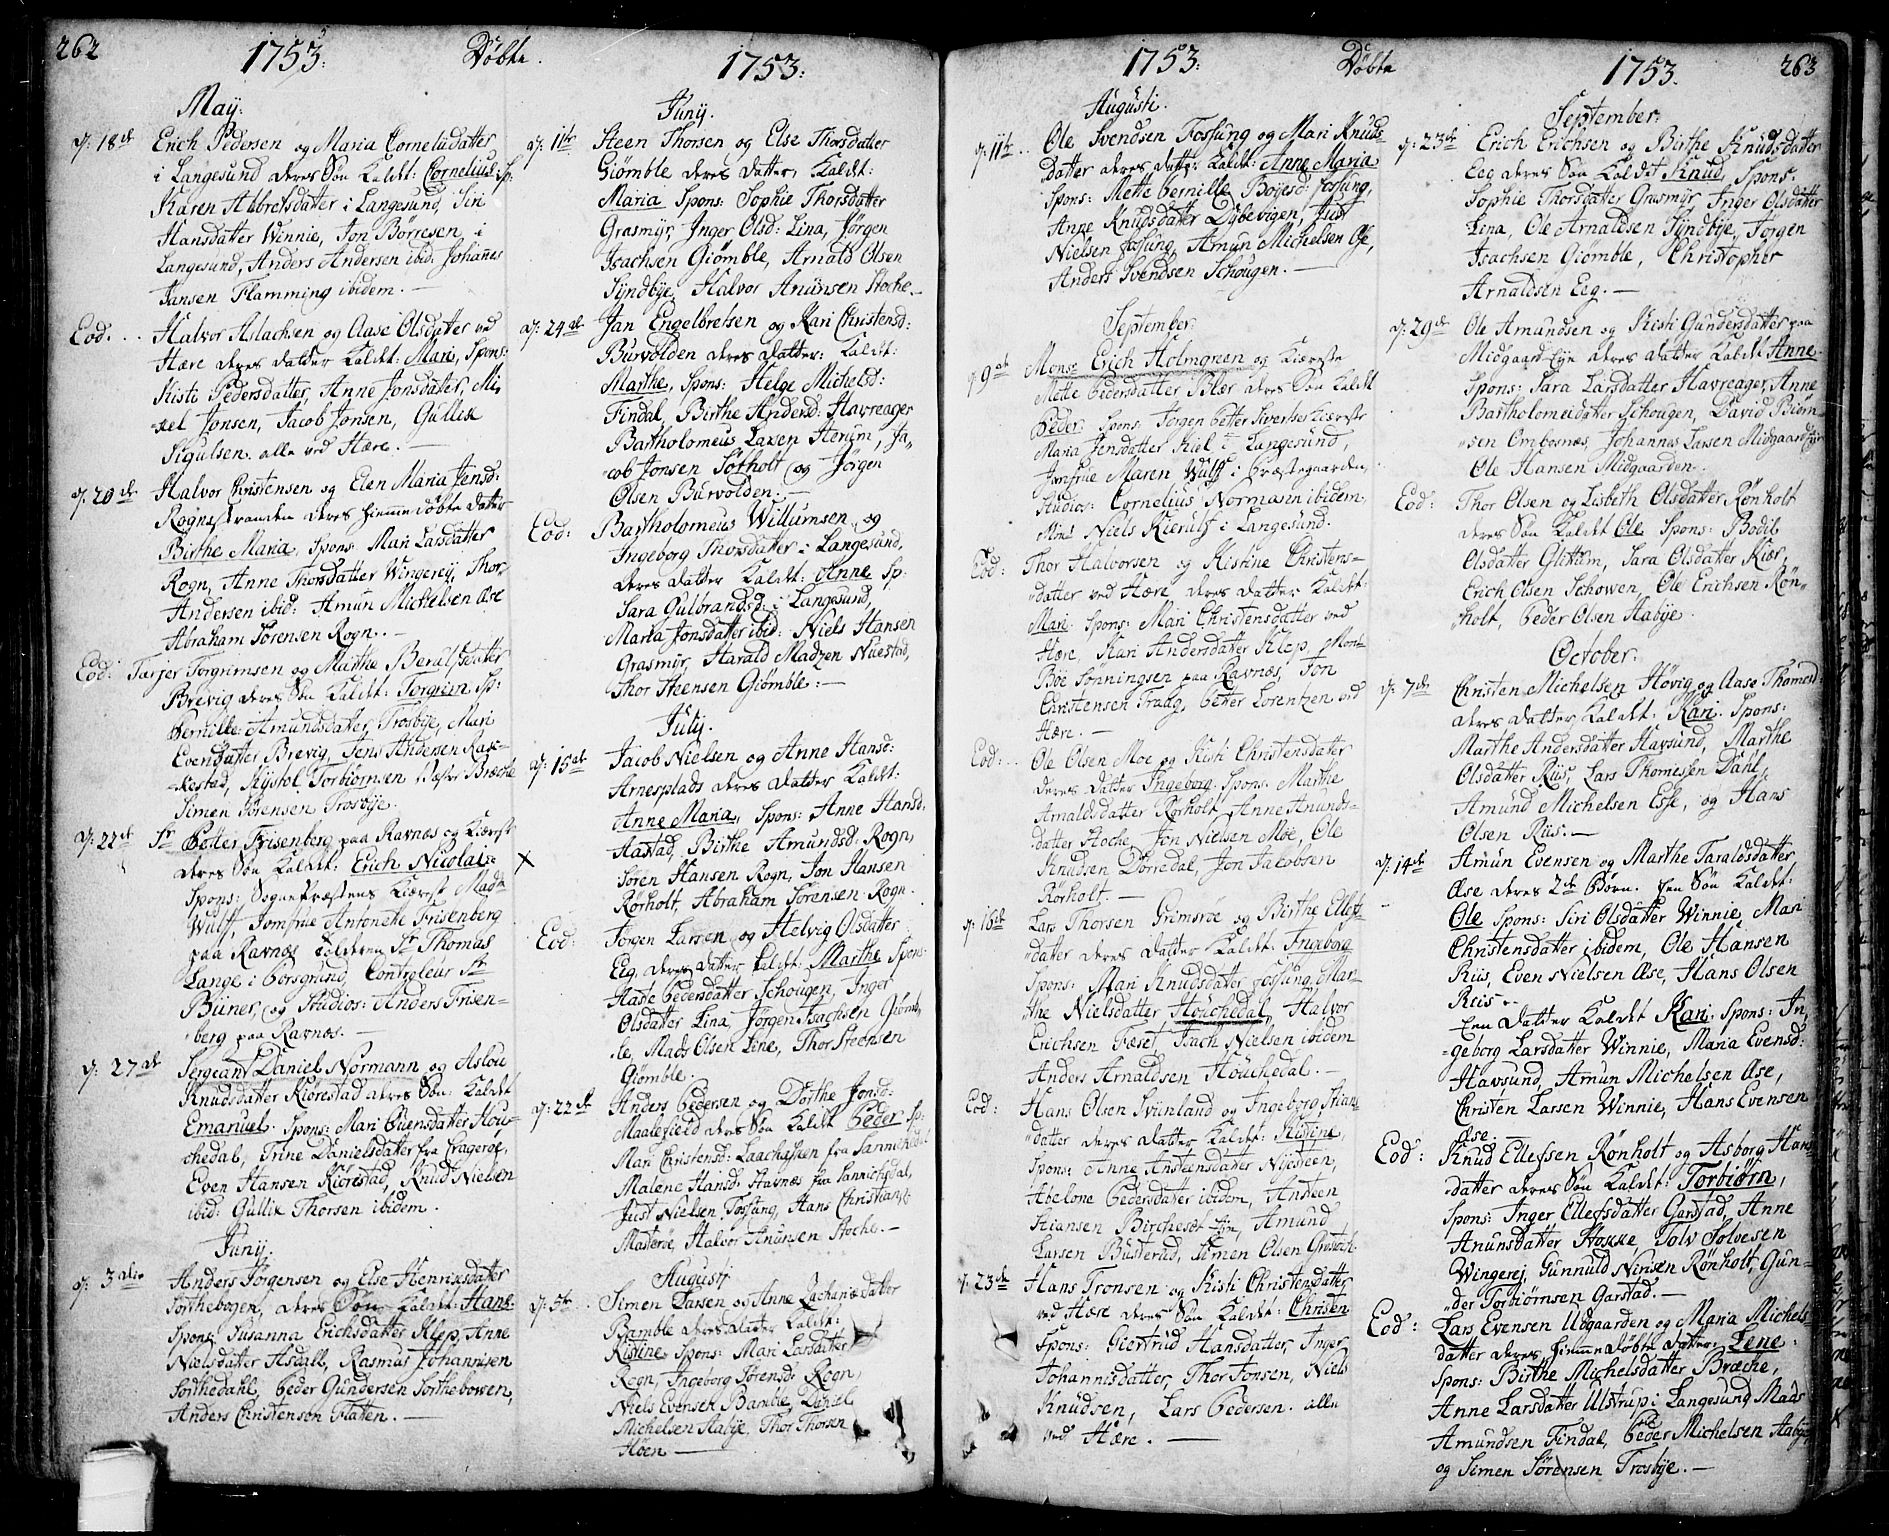 262
1753.
Döbte.
May.
d: 18de
Erich Pedersen og Maria Cornelisdatter
i Langesund deres Søn kaldet: Cornelius Sp:
Karen Albretsdatter i Langesund, Siri
Hansdatter Winnie, Jon Børresen, i
Langesund, Anders Andersen ibid. Johanes
Jansen Flamming ibidem. —
Eod. . .
Halvor Aslachsen og Aase Olsdatter ved
Hære deres datter kaldet: Mari, Spons:
Kisti Pedersdatter, Anne Jonsdatter, Mi-
kel Jonsen, Jacob Jonsen, Gullik
Sigulsen. alle ved Hære. —
d: 20de
Halvor Christensen og Elen Maria Jensd:
Rognsstranden deres hiemme døbte datter
Birthe Maria, Spons: Mari Larsdatter
Rogn, Anne Thorsdatter Wingereÿ, Thor
Andersen ibid: Amun Michelsen Øse
Abraham Sørensen Rogn. —
Eod:
Tarjer Torgrimsen og Marthe Berulfsdatter
Brevig deres Søn kaldet: Torgrim, Sp:
Pernille Amundsdatter, Trosbÿe, Mari
Evensdatter Brevig, Jens Andersen Rax-
kestad, Kystol Torbiornsen Næfve Bræche
Simen Sørensen Trosbÿe.
d: 22de
Sr Petter Frisenberg paa Ravnæs og Kiærest
deres Søn kaldet: Erich Nicolai:
Spons: Sognepræstens Kiærest Madm
Wulf, Jomfrue Antonette Frisenberg
paa Ravnæs Tolderne Sr Thomas
Lange i Porsgrund, Controleur Sr
Büner, og Studios: Anders Frisen-
berg paa Ravnæs. —
d: 27de
Sergeant Daniel Normann og Aslou
Knudsdatter Kiørestad deres Søn: kaldet
Emanuel. Spons: Mari Guensdatter Hou-
chedal, Trine Danielsdatter fra Cragerøe,
Even Hansen Kiørestad, Knud Nielsen
ibid: Gullik Thorsen ibidem.
Junÿ.
d: 3die
Anders Jørgensen og Else Henrixsdatter
Sorthebogen, deres Søn kaldet: Hans
Spons: Susanna Erichsdatter Klep, Anne
Nielsdatter Asdall, Rasmus Johannisen
Sorthedahl, Peder Gundersen Sorthebowen,
Anders Christensen Flatten. —
1753.
Junÿ.
d: 11te
Steen Thorsen og Else Thorsdatter
Giømble deres datter, kaldet:
Maria Spons: Sophie Thorsdatter
Grasmÿr, Inger Olsd: Lina, Jørgen
Isachsen Giømble, Arnald Olsen
Tÿndbÿe, Halvor Anunsen Stoche. —
d: 24de
Jan Engelbretsen og Kari Christensd:
Burvolden deres datter: kaldet:
Marthe, Spons: Helge Michelsd:
Findal, Birthe Andersd: Havreager
Bartholomeus Laxen Herum, Ja-
cob Jonsen Søtholt og Jørgen
Olsen Burvolden. —
Eod:
Bartholomeus Willumsen og
Ingeborg Thorsdatter i Langesund,
deres datter kaldet: Anne Sp:
Sara Gulbrandsd: i Langesund,
Maria Jonsdatter ibid: Niels Hansen
Grasmÿr, Harald Madzen Nuestad,
Thor Steensen Giømble. —
Julÿ.
d: 15de
Jacob Nielsen og Anne Hansd:
Arnesplads deres datter kaldet:
Anne Maria, Spons: Anne Hansd:
Aastad, Birthe Amundsd: Rogn,
Søren Hansen Rogn, Jon Hansen
Rørholt, Abraham Sørensen Rogn.
Eod:
Jørgen Larsen og Helvig Olsdatter
Eeg, deres datter kaldet: Marthe Spons:
Aase Pedersdatter Schougen, Inger
Olsdatter Lina, Jørgen Isachsen Giømb-
le, Mads Olsen Line, Thor Steensen
Giømble.
d: 22de
Anders Pedersen og Dorthe Jonsd:
Maalefield deres Søn kaldet Peder Sp:
Mari Christensd: Laachaschen fra Sannichedal
Malene Hansd: Havnæs fra Sannichedal,
Just Nielsen Fossung, Hans Christians
Masterøe, Halvor Anunsen Stoche. —
Augustj
d: 5te
Simen Larsen og Anne Zachariædatter
Bamble deres datter kaldet:
Kistine, Spons: Mari Larsdatter
Rogn, Ingeborg Sørensd: Rogn,
Niels Evensen Bamble, Daniel
Michelsen Aabÿe, Thor Thorsen
Høen —
1753.
Döbte
Augusti.
d: 11te . .
Ole Svendsen Fossung og Mari Knuds-
datter deres datter kaldet: Anne Maria
Spons: Mette Pernille Boÿesd: Fossung,
Anne Knudsdatter Dÿbevigen, Just
Nielsen Fossung, Amun Michelsen Øse,
Anders Svendsen Schougen. —
September:
d 9de
Monsr Erich Holmgreen og Kiæreste
Mette Pedersdatter Bler deres Søn kaldet
Peder. Spons: Jørgen Petter Siverses Kiæreste
Maria Jensdatter Kiel i Langesund,
Jomfrue Maren Wulff i Præstegaarden,
Studios: Cornelius Normann ibidem,
Monsr Niels Kierulf i Langesund.
Eod:
Thor Halvorsen og Kistine Christens-
datter ved Hære, deres datter kaldet:
Mari. Spons: Mari Christensdatter ved
Hære, Kari Andersdatter Klep, Monsr
Boe Sønningsen paa Ravnæs, Jon
Christensen Traag, Petter Lorentzen ved
Hære. —
Eod: . .
Ole Olsen Moe og Kisti Christensdatter
deres datter Ingeborg. Spons: Marthe
Arnaldsdatter Rørholt, Anne Anunds-
datter Stoche, Jon Nielsen Moe, Ole
Knudsen Dorredal, Jon Jacobsen
Rørholt. —
d: 16de
Lars Thorsen Grimsrøe og Birthe Ellefs-
datter deres datter kaldet: Ingeborg
Spons: Mari Knudsdatter Fossung, Mar-
the Nielsdatter Høuchedal, Halvor
Erichsen Fæset, Isach Nielsen ibidem
Anders Arnaldsen Høuchedal. —
Eod:
Hans Olsen Sviinland og Ingeborg Stian-
datter deres datter kaldet: Kistine,
Spons: Anne Anstensdatter Nÿesteen,
Abelone Pedersdatter ibidem, Ansteen
Stiansen Birchesæt Eje, Amund
Larsen Busterud, Simen Olsen Grotoch.
d: 23de
Hans Tronsen og Kisti Christensdatter
ved Hære deres Søn kaldet: Christen
Spons: Giertrud Hansdatter, Inger
Johannisdatter, Thor Jonsen, Niels
Knudsen, Lars Pedersen. alle
ved Hære. —
1753.
263
September:
d: 23de
Erich Erichsen og Birthe Knudsdatter
Eeg deres Søn kaldet Knud, Spons.
Sophie Thorsdatter Grasmÿr, Inger Olsdatter
Lina, Ole Arnaldsen Tÿndbÿe, Jørgen
Isachsen Giømble, Christopher
Arnaldsen Eeg. —
d: 29de
Ole Amundsen og Kisti Gundersdatter paa
Midgaard Eje deres datter kaldet Anne.
Spons: Sara Larsdatter Havreager, Anne
Bartholomeidatter Schougen, David Biørn-
sen Ombosnæs, Johannes Larsen Midgaard Eje
Ole Hansen Midgaarden.
Eod:
Thor Olsen og Lisbeth Olsdatter Rønholt
deres Søn kaldet Ole Spons: Bodil
Olsdatter Glitrum, Sara Olsdatter Kiær,
Erich Olsen Schowen, Ole Erichsen Røn-
holt, Peder Olsen Aabÿe.
October:
d: 7de
Christen Michelsen Høvig og Aase Thomesd:
deres datter kaldet: Kari. Spons:
Marthe Andersdatter Havsund, Marthe
Olsdatter Riis, Lars Thomessen Dahl,
Amund Michelsen Esse, og Hans
Olsen Riis. —
d: 14de
Amun Evensen og Marthe Taraldsdatter
Øse deres 2de Børn. Een Søn kaldet:
Ole Spons: Siri Olsdatter Winnie, Mari
Christensdatter ibidem, Ole Hansen
Riis, Even Nielsen Øse, Hans Olsen
Riis. —
Een datter kaldet Kari: Spons: In-
geborg Larsdatter Winnie, Maria Evensd:
Havsund, Amun Michelsen Øse,
Christen Larsen Winnie, Hans Evensen
Øse. —
Eod:
Knud Ellefsen Rønholt og Asborg Hans-
datter deres Søn kaldet: Torbiørn,
Spons: Inger Ellefsdatter Garstad, Anne
Anunsdatter Stokke, Tolv Solvesen
Wingerej, Gunnuld Nirisen Rønholt, Gun-
der Torbiørnsen Garstad. —
Eod:
Lars Evensen Udgaarden og Maria Michels
datter deres hiemme døbte datter: Lene:
Spons: Birthe Michelsdatter Bræche,
Anne Larsdatter Ulstrup i Langesund Mads
Amundsen Findal, Peder Michelsen Aabÿe,
og Simen Sørensen Trosbÿe. —